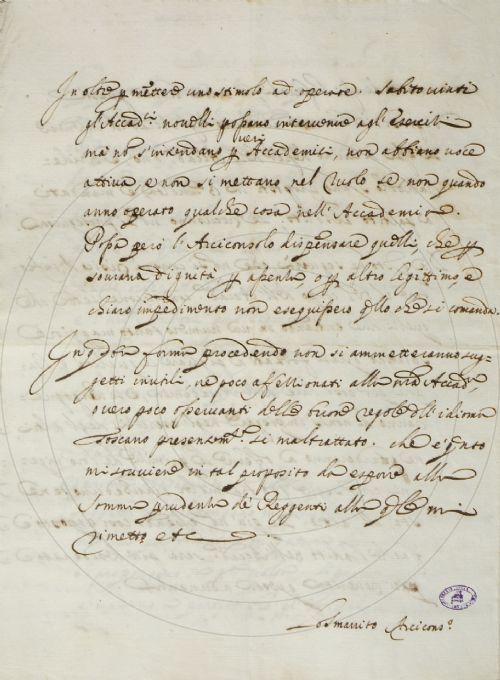 Inoltre p mettere uno stimolo ad operare. Subito vinti
gl'Accad.ci novelli possano intervenire agl'esercizi
veri
ma nõ s'intendano p Accademici, non abbiano voce
attiva, e non si mettano nel Ruolo se non quando
anno operato qualche cosa nell'Accademia.
Possa però l'Arciconsolo dispensare quelli, che p
sovrana dignità p assenza o p altro legittimo, e
chiaro impedimento non eseguissero qllo che si comanda.
In q forma procedendo non si ammetteranno sug-
getti inutili, ne poco affezionati alla nrã Accad.ª,
overo poco osservanti delle buone regole dell'idioma
Toscano presentem.te sì maltrattato. che è q.nto
mi sovviene in tal proposito da esporre alla
somma prudenza de' Reggenti alla q.le mi
rimetto etc.
Lo Smarrito Arcicons.º